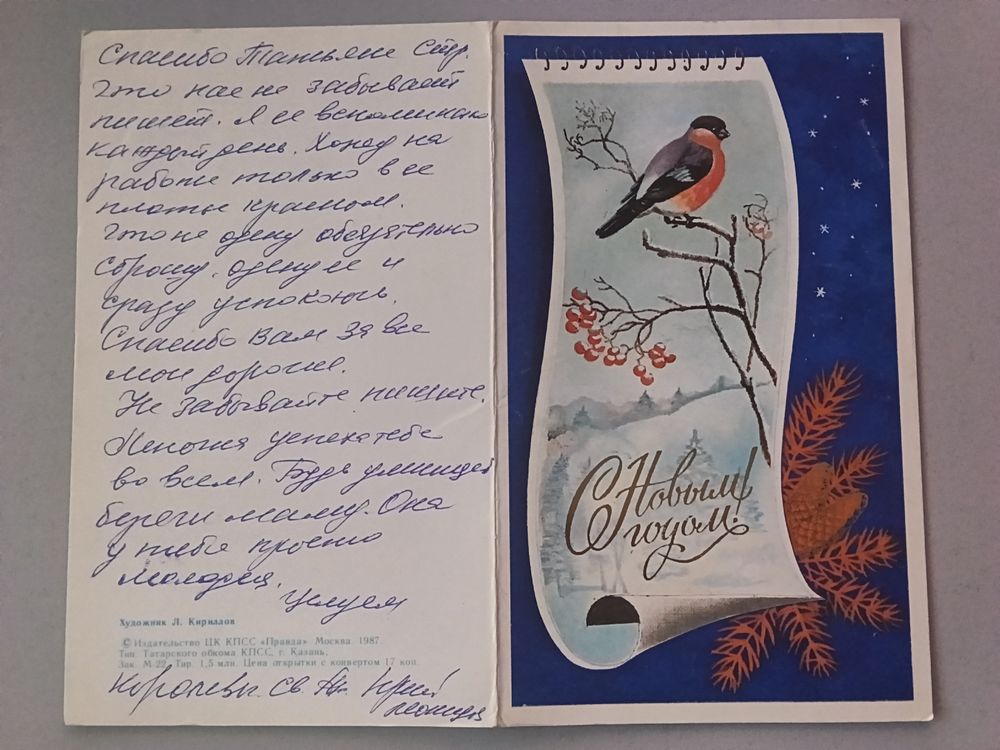 Спасибо Татьяне
что нас не забывает
пишет. Я ее вспоминаю
каждый день. Хожу на
работе только в ее
платье красном.
Что не одену обязательно
сброшу, одену ее и
сразу успокоюсь.
Спасибо Вам за все
мои дорогие.
Не забывайте пишите.
Леночка успеха тебе
во всем. Будь умницей
береги маму. Она
у тебя просто
молодец.
Целуем
Художник Л. Кириллов
© Издательство ЦК КПСС «Правда» Москва. 1987.
Тип. Татарского обкома КПСС, г. Казань.
Зак. М-22. Тир. 1,5 млн. Цена открытки с конвертом 17 коп.
Королевы. Св.
С Новым
годом!